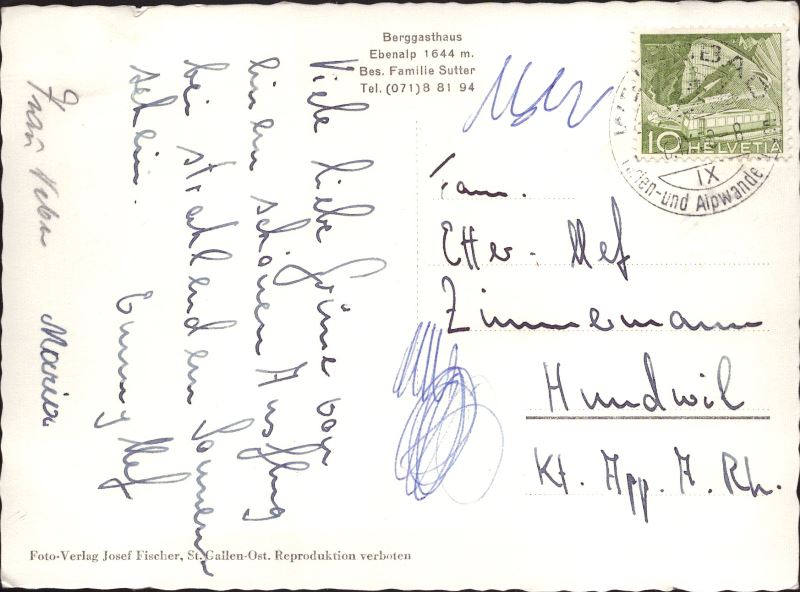 Berggasthaus
Ebenalp 1644 m.
Bes. Familie Sutter
Tel. (071) 8 81 94
Viele liebe Grüsse von
einem schönen Ausflug
bei strahlendem Sonnen-
schein.
Emmy Nef
Frau
Maria
10 HELVETIA
BAD
IX
und Alpwande
Fam.
Etter-Nef
Zimmermann
Hundwil
Kt. App. A. Rh.
Foto-Verlag Josef Fischer, St. Gallen-Ost. Reproduktion verboten